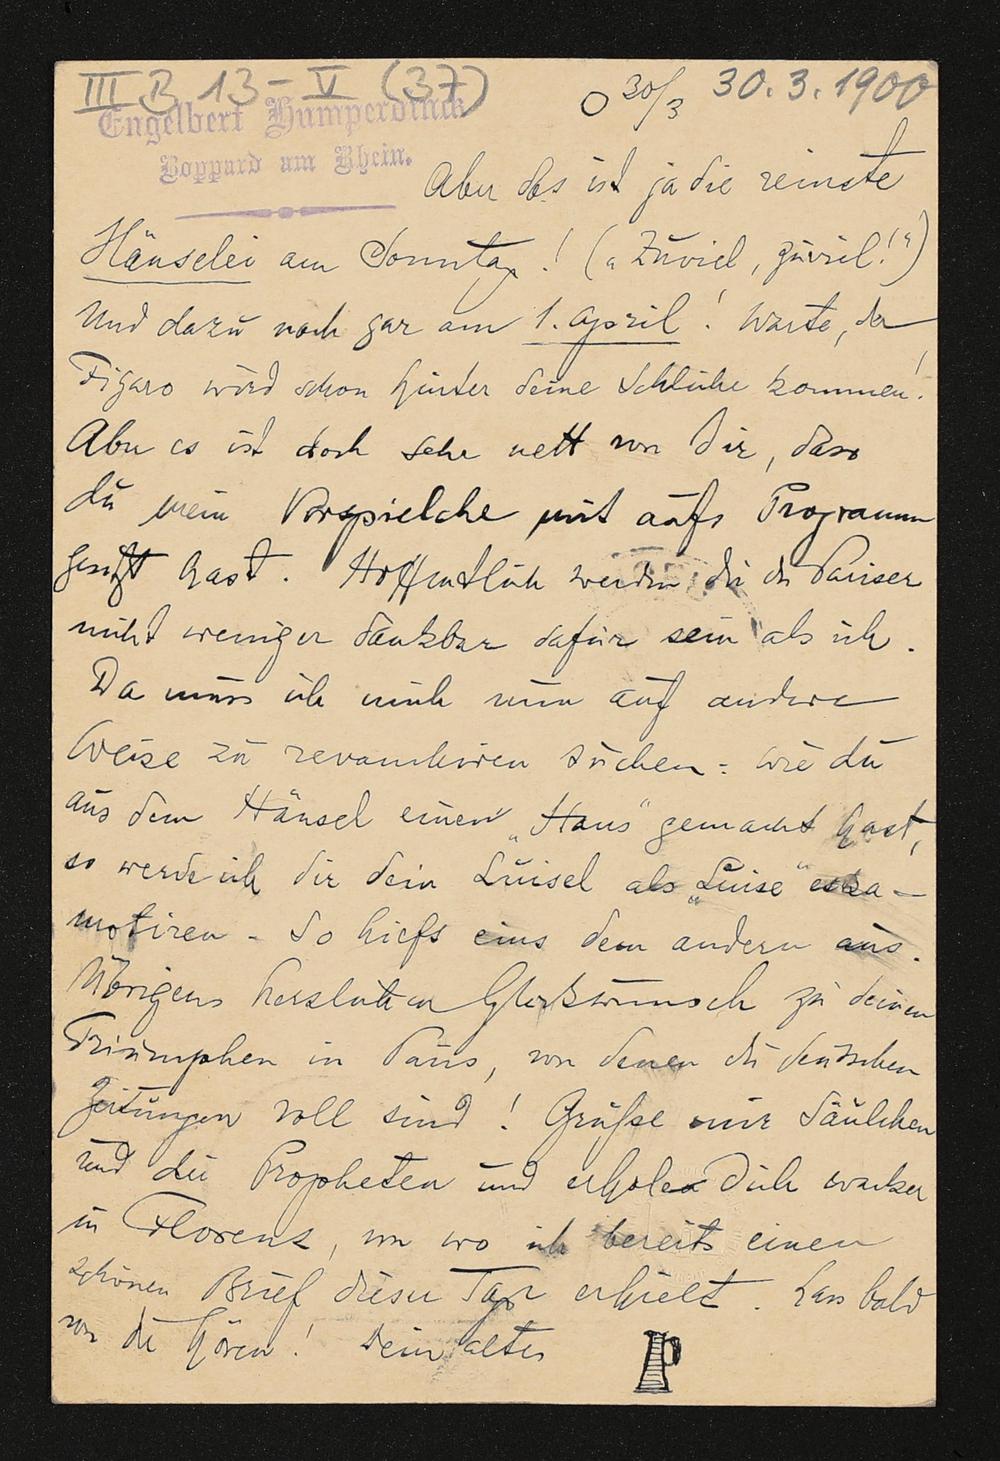 III B 13 - V (37)
Engelbert Humperdinck
Boppard am Rhein.
30/3 30.3.1900
Aber das ist ja die reinste
Hänselei am Sonntag! („Zuviel, zuviel!“)
Und dazu noch gar am 1. April! Warte, der
Figaro wird schon hinter deine Schliche kommen!
Aber es ist doch sehr nett von Dir, dass
du mein Vorspielche mit aufs Programm
gesetzt hast. Hoffentlich werden dir die Pariser
nicht weniger dankbar dafür sein als ich.
Da muss ich mich nun auf andere
Weise zu revanchiren suchen: wie du
aus dem Hänsel einen „Hans“ gemacht hast,
so werde ich dir dein Luisel als „Luise“ eska-
motiren - So hiefs eins dem andern aus.
Übrigens herzlichen Glückwunsch zu deinen
Triumphen in Paris, von denen die deutschen
Zeitungen voll sind! Grüße mir Säulchen
und die Propheten und erhole Dich wacker
in Florenz, von wo ich bereits einen
schönen Brief dieser Tage erhielt. Lass bald
von dir hören! Dein alter